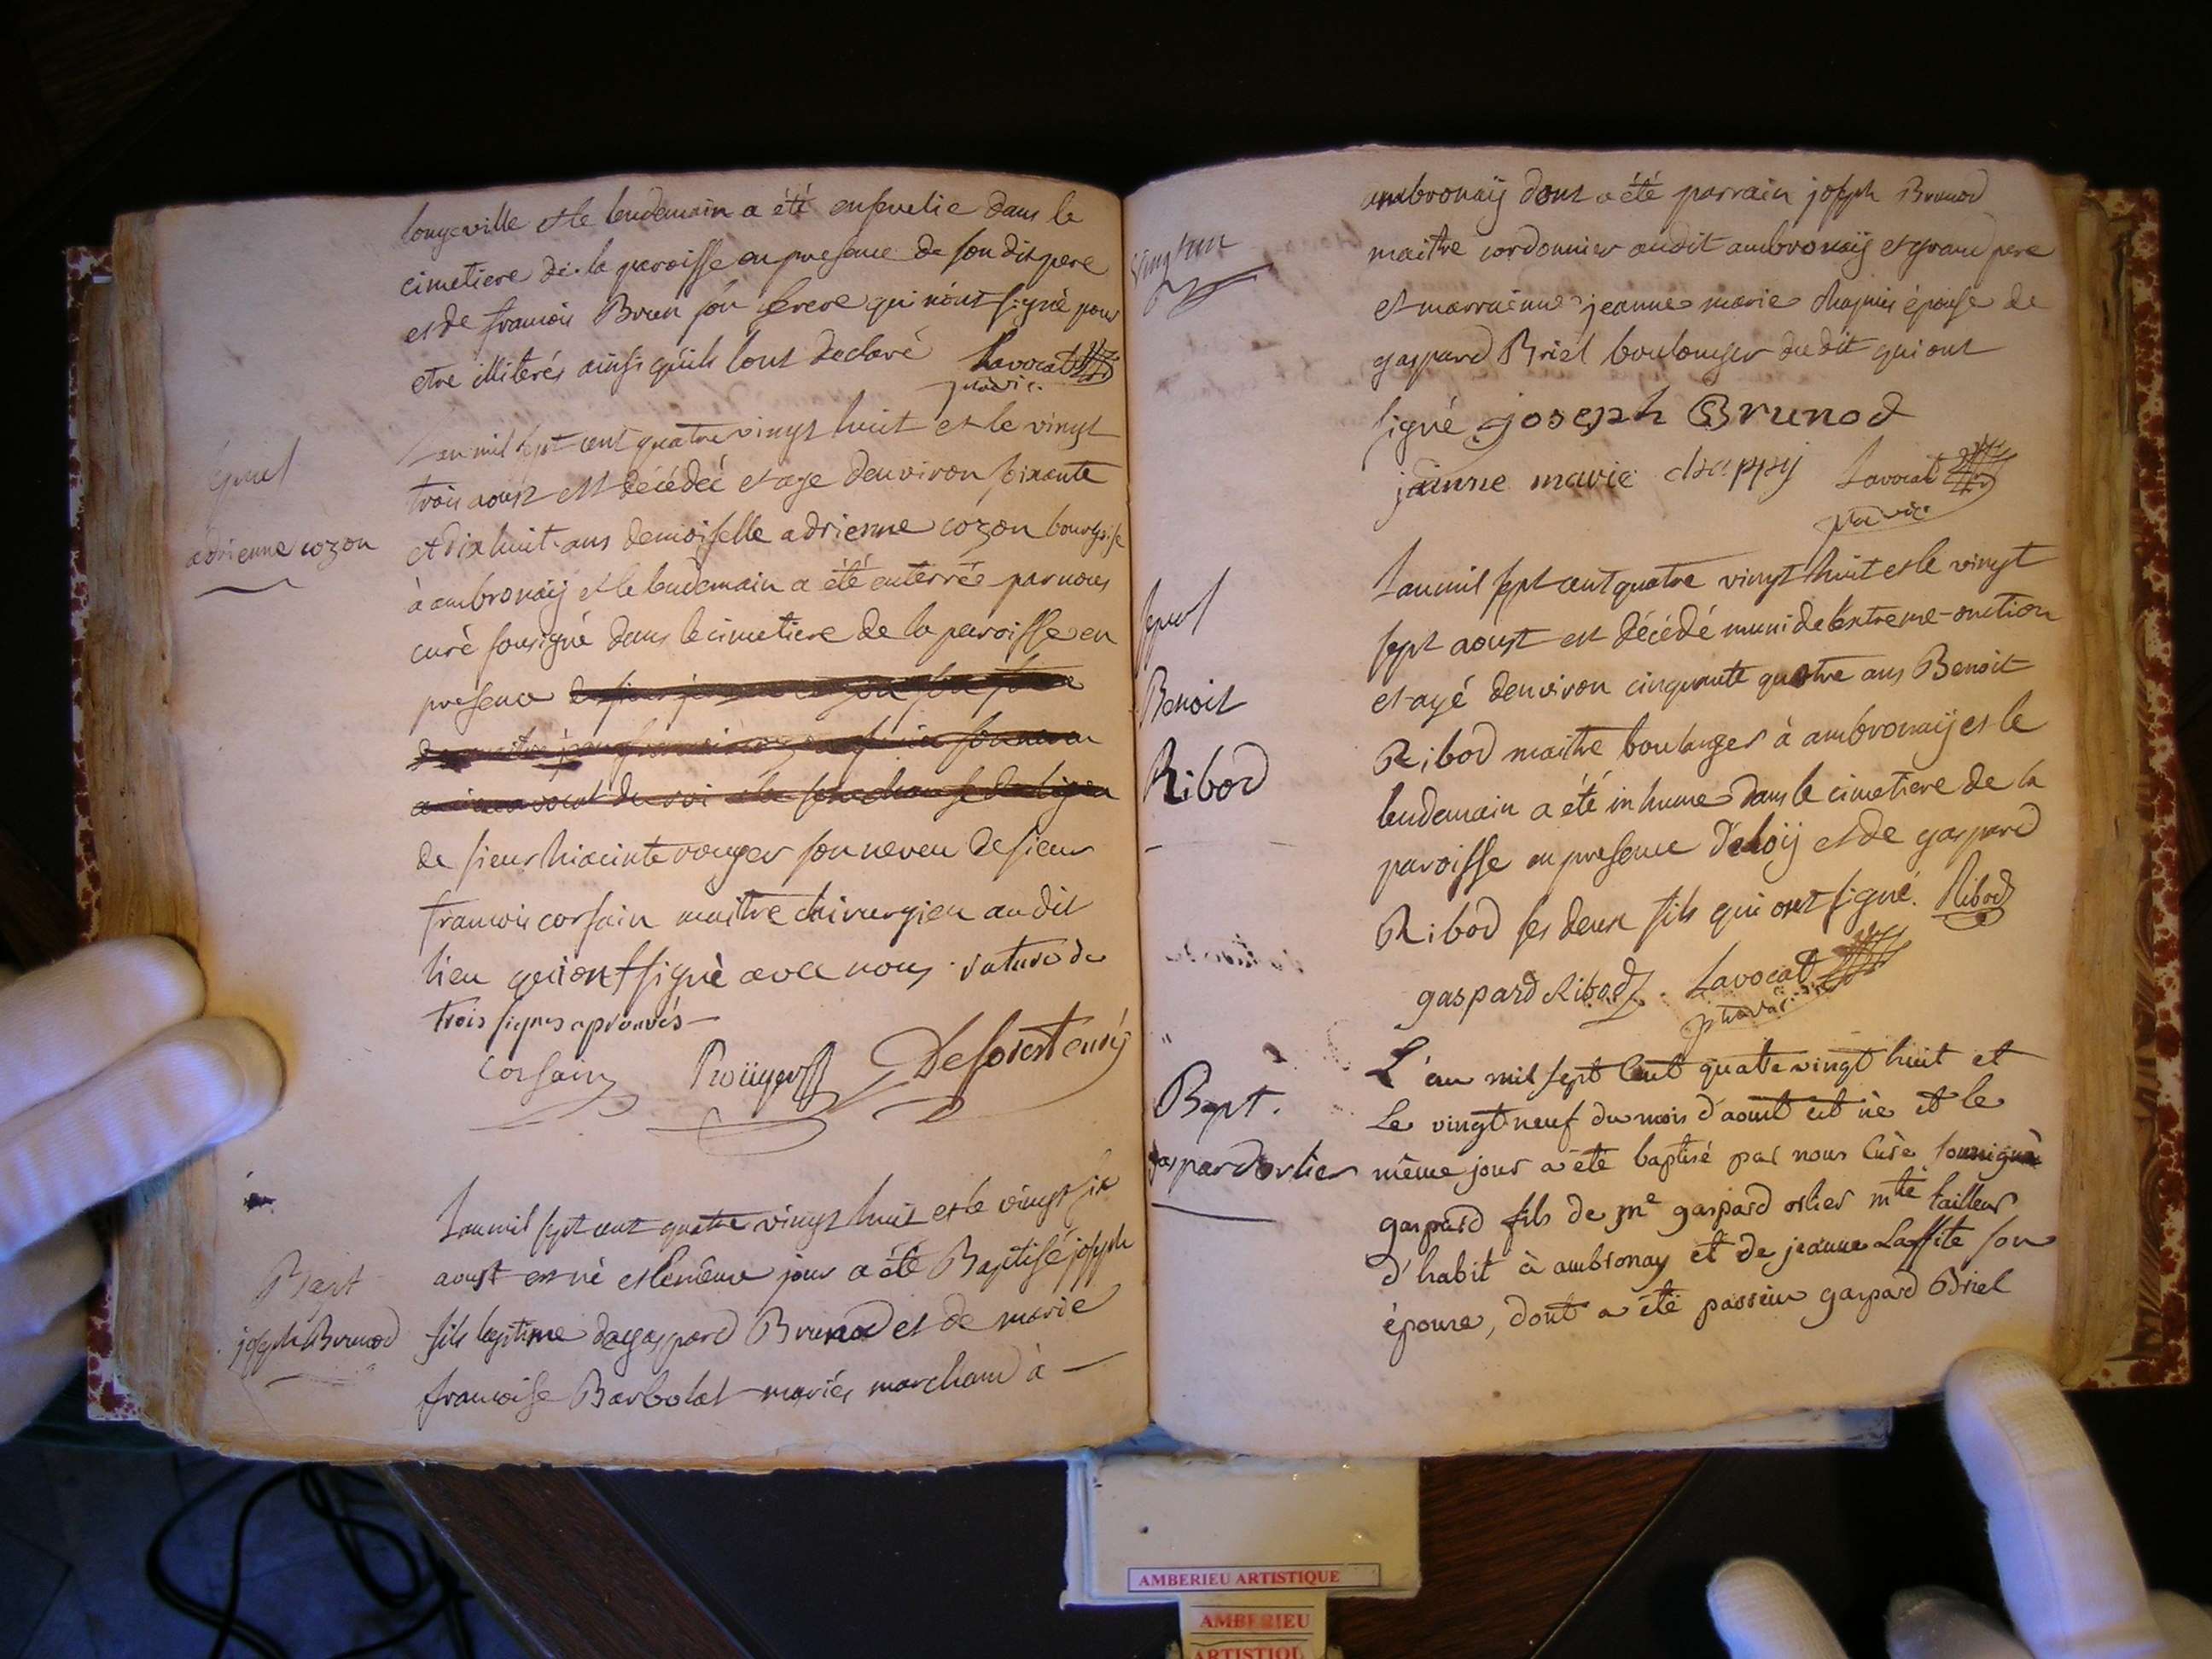 longeville et le lendemain a été ensevelie dans le
cimetiere de la paroisse en presence de son dit pere
et de francois Brun son frere qui n'ont signé pour
etre illiterés ainsi qu'ils l'ont declaré Lavocat
pro vic.
sepul
adrienne cozon
Lan mil sept cent quatre vingt huit et le vingt
trois aoust est décédée et age denviron soixante
et dix huit ans demoiselle adrienne cozon bourgoise
à ambronaÿ et le lendemain a été enterrée par nous
curé sousigné dans le cimetiere de la paroisse en
presence
de sieur hiacinte rouyer son neveu de sieur
francois corsain maitre chirurgien au dit
lieu qui ont signé avec nous. rature de
trois lignes aprouvés
Corsain Roüyer Deforest curé
Bapt
joseph Brunod
Lan mil sept cent quatre vingt huit et le vingt six
aoust est né et le même jour a été Baptisé joseph
fils legitime de gaspard Brunod et de marie
francoise Barbolat mariés marchand à
vingt un
ambronaÿ dont a été parrain joseph Brunod
maitre cordonnier au dit ambronaÿ et grand pere
et marraine jeanne marie chapuis épouse de
gaspard Briel boulonger du dit qui ont
signé joseph Brunod
jeanne marie chappuÿ Lavocat
pro vic
sepul
Benoit
Ribod
Lan mil sept cent quatre vingt huit et le vingt
sept aoust est décédé muni de l'extreme-onction
et agé denviron cinquante quatre ans Benoit
Ribod maitre boulanger à ambronaÿ et le
lendemain a été inhumé dans le cimetiere de la
paroisse en presence d'eloÿ et de gaspard
Ribod ses deux fils qui ont signé. Ribod
gaspard Ribod. Lavocat
pro vic
Bapt.
gaspard orlier
L'an mil sept cent quatre vingt huit et
Le vingt neuf du mois d'aoust est né et le
même jour a été baptisé par nous Curé soussigné
gaspard fils de me gaspard orlier mtre tailleur
d'habit à ambronay et de jeanne Laffite son
épouse, dont a été parrein gaspard Briel
AMBERIEU ARTISTIQUE
AMBERIEU
ARTISTIQU